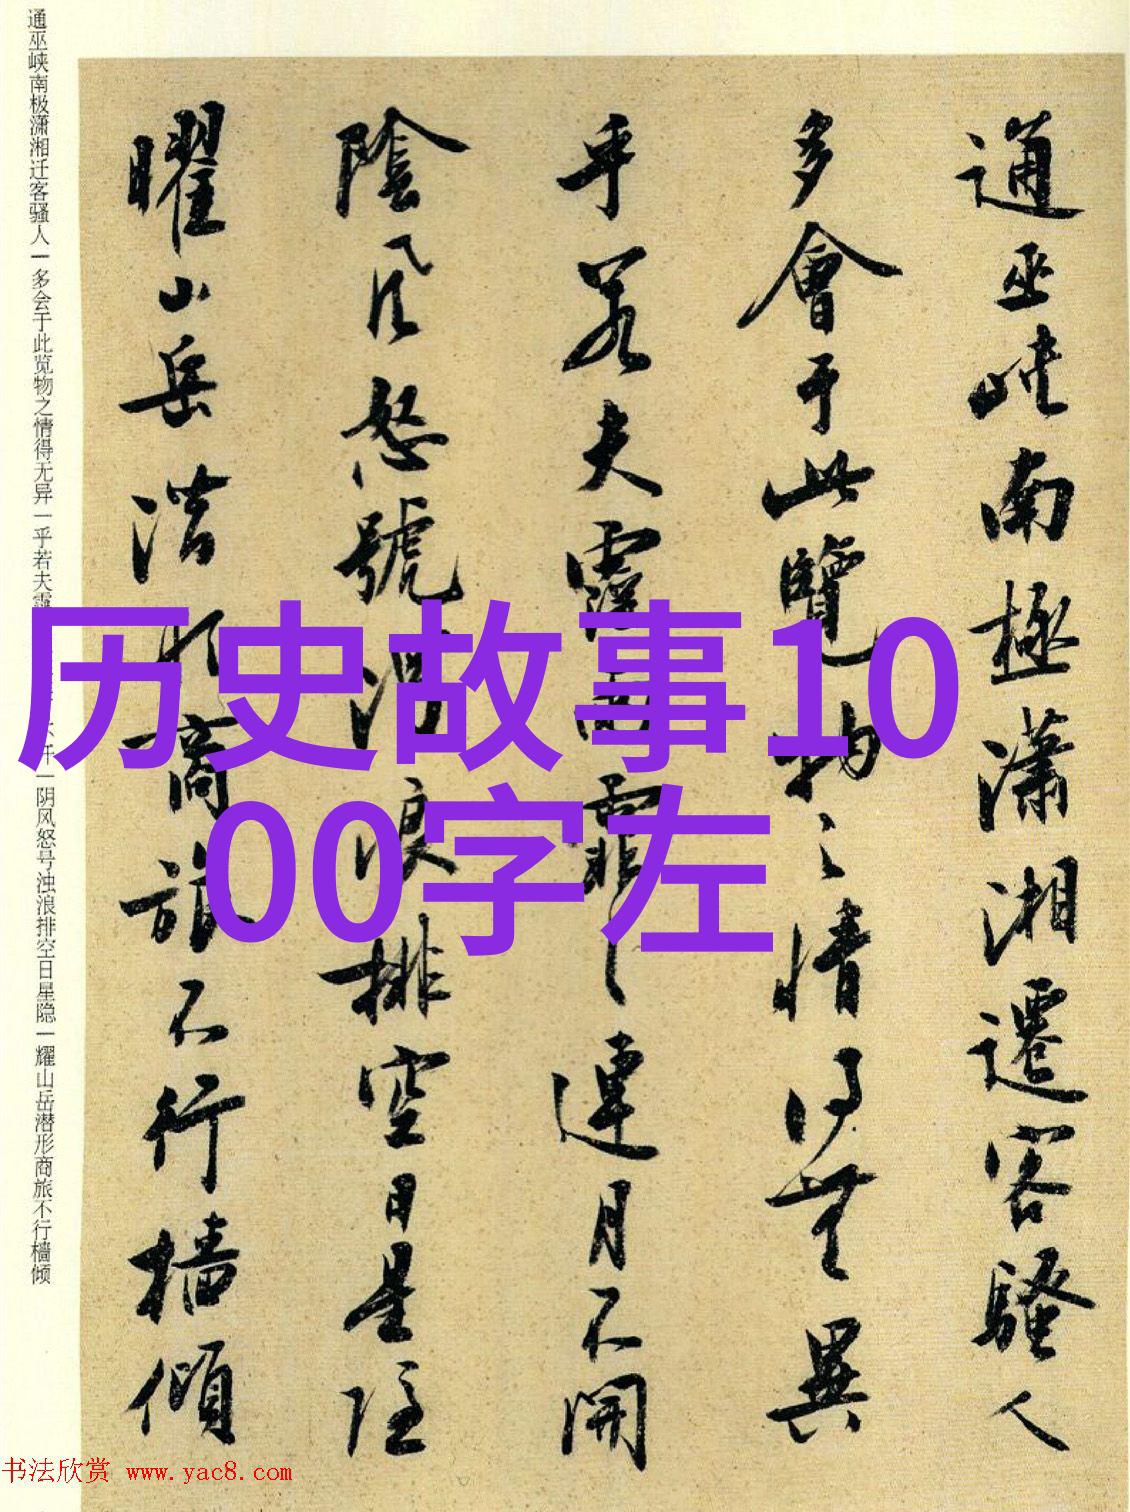 通巫峡南極瀟湘遷客騷人
多會于此覽物之情得無異
乎若夫霪雨霏霏連月不開
陰風怒號濁浪排空日星隱
曜山岳潜形商旅不行檣傾
通巫峡南极潇湘迁客骚人一多会于此览物之情得无异一乎若夫霪
开一阴风怒号浊浪排空日星隐一耀山岳潜形商旅不行樯倾
历史故事10
00字左
书法欣赏 www.yac8.com